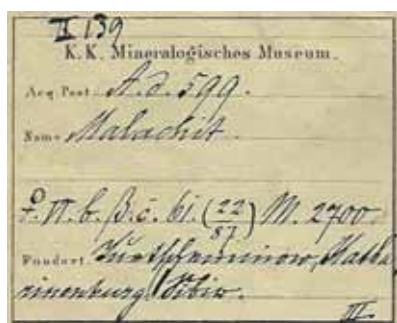 II 139
K. K. Mineralogisches Museum.
Acq. Post. A. d. 599.
Name Malachit.
II. b. β. c. 61. (22/87) M. 2700
Fundort. Katha-
rinenburg Sibir.
III.